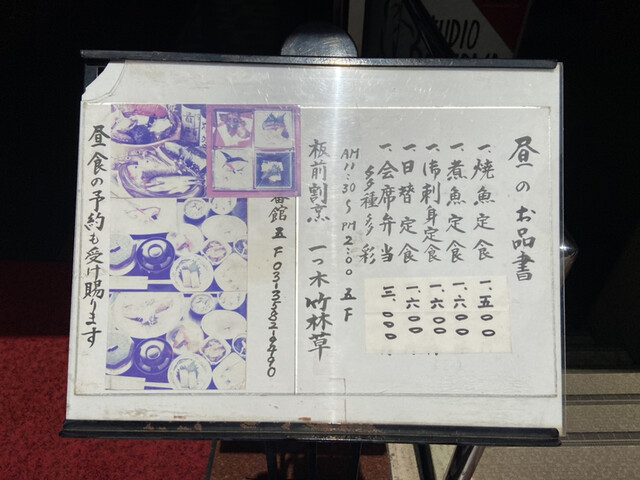 STUDIO
昼のお品書
一、焼魚定食 一、五〇〇
一、煮魚定食 一、六〇〇
一、御刺身定食 一、六〇〇
一、日替定食 一、六〇〇
一、会席弁当 三、〇〇〇
多種多彩
AM 11:30〜PM 2:00 五F
板前割烹 一ツ木 竹林草
番館 五F 03-3582-9490
昼食の予約も受け賜ります